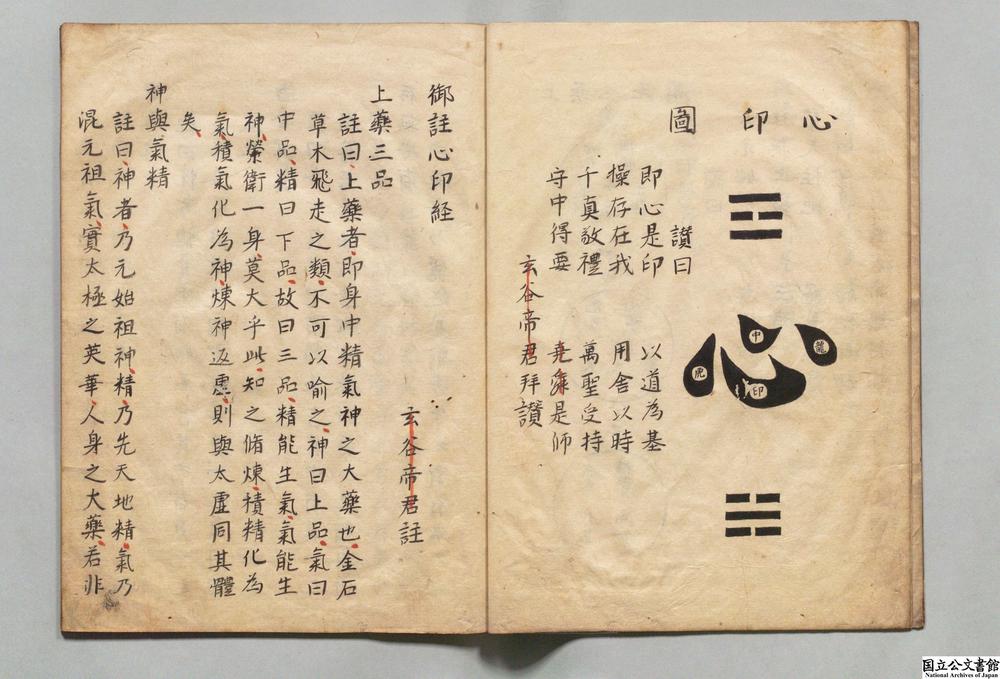 心印圖
龍
中
心
印
虎
讃曰
即心是印　以道為基
操存在我　用舎以時
千真敬禮　萬聖受持
守中得要　堯舜是師
玄谷帝君拜讃
御註心印経
玄谷帝君註
上藥三品
註曰上藥者即身中精氣神之大藥也金石
草木飛走之類不可以喻之神曰上品氣曰
中品精曰下品故曰三品精能生氣氣能生
神榮衛一身莫大乎此知之脩煉積精化為
氣積氣化為神煉神返虛則與太虛同其體
矣
神與氣精
註曰神者乃元始祖神精乃先天地精氣乃
混元祖氣實太極之英華人身之大藥若非
国立公文書館
National Archives of Japan